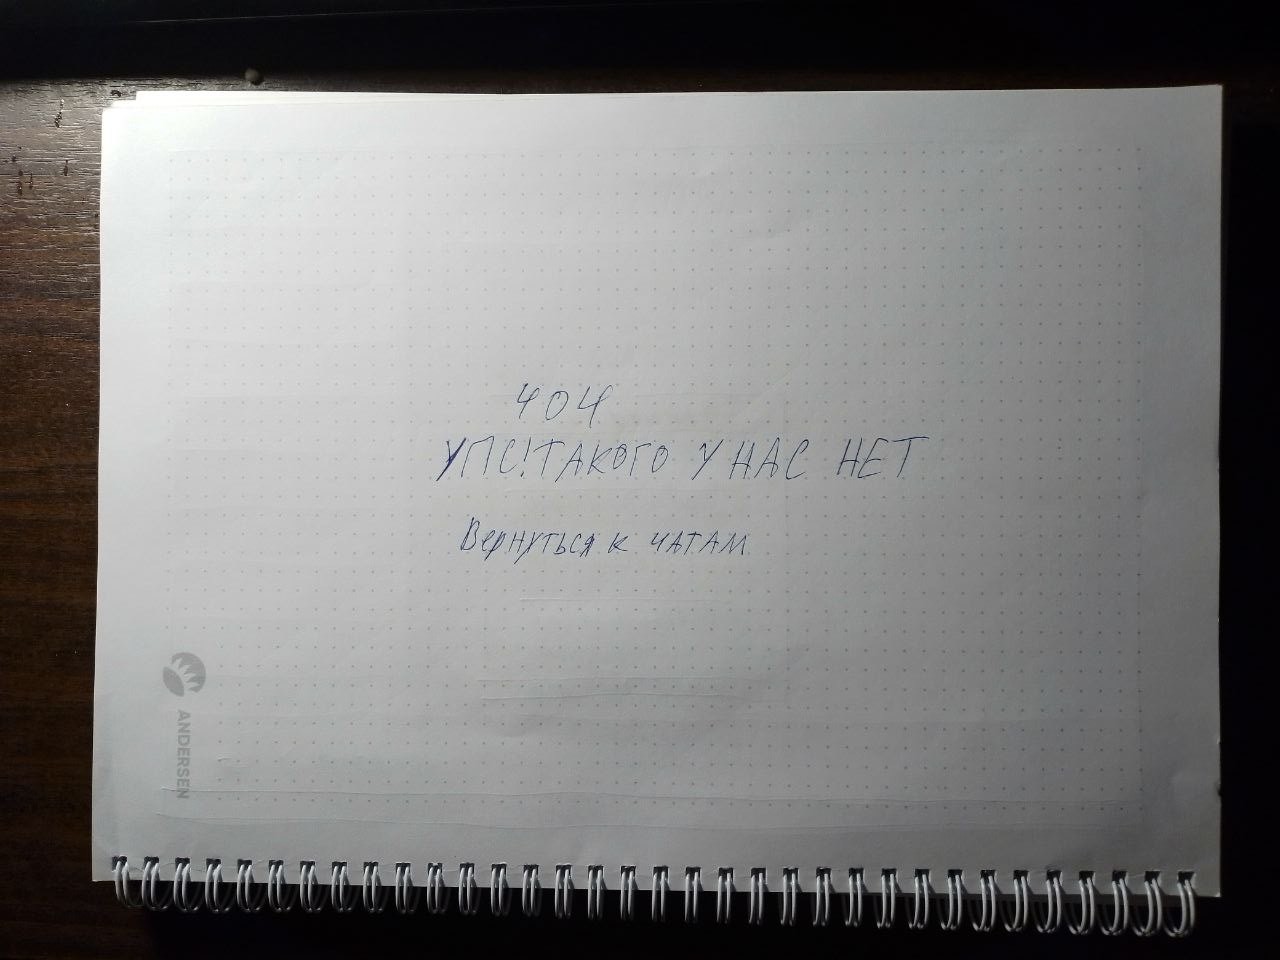 404
УПС! ТАКОГО У НАС НЕТ
Вернуться к ЧАТАМ
ANDERSEN